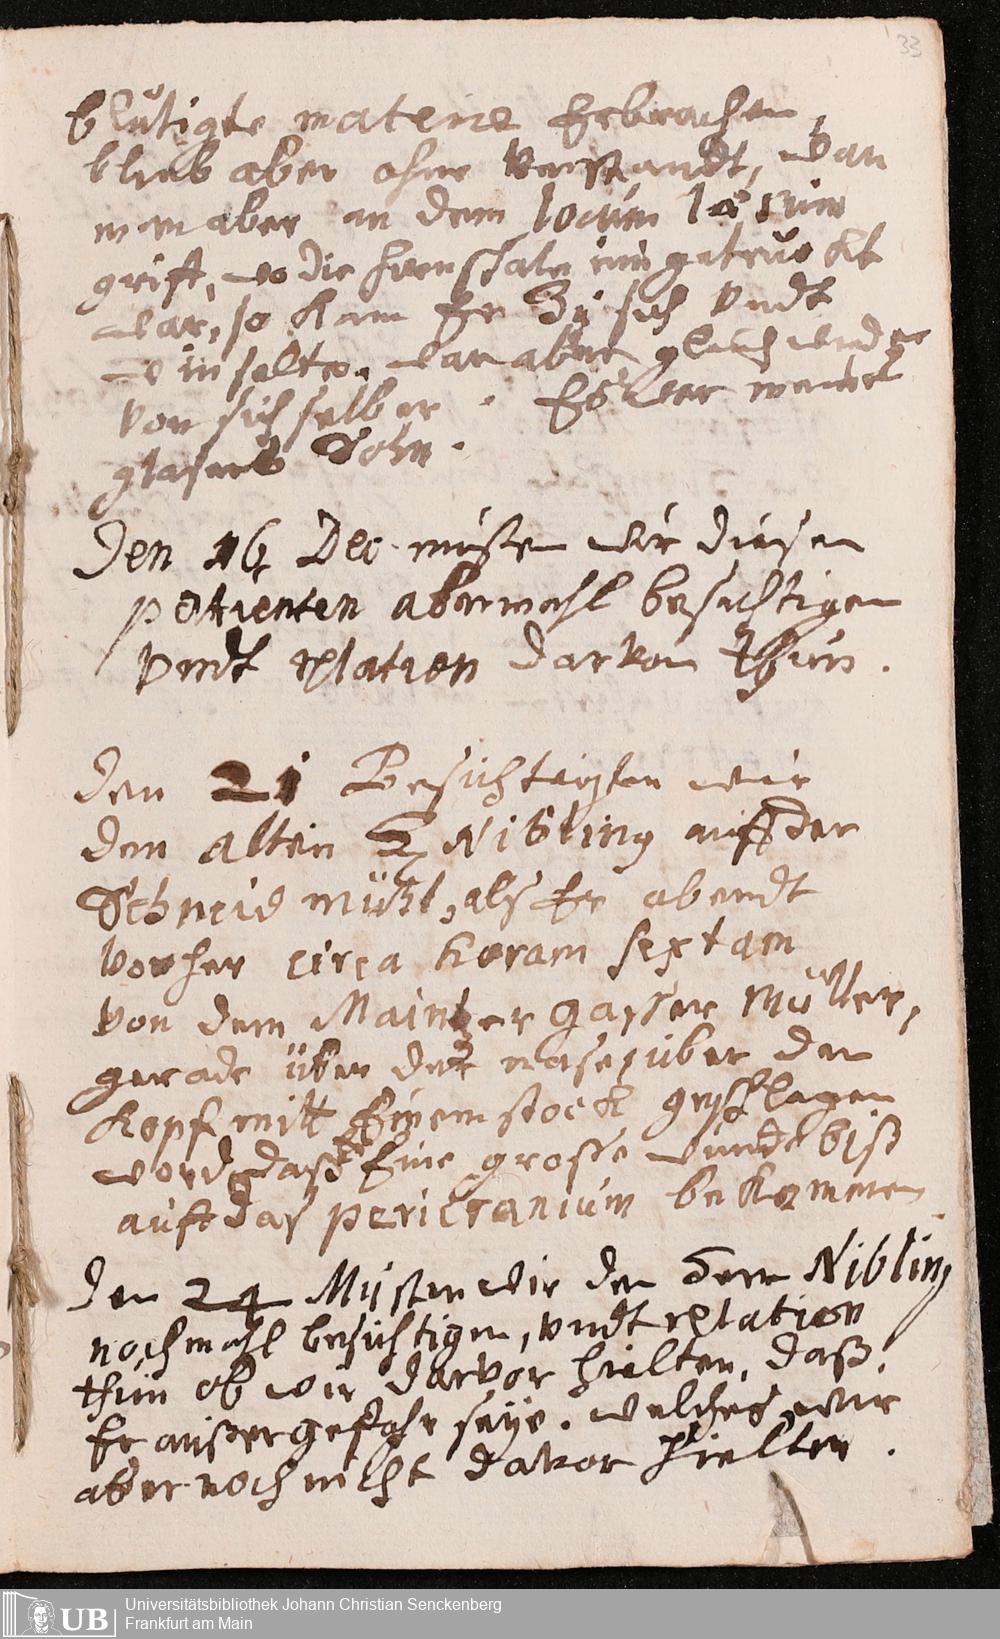 33
blütigte materie Erbrochen,
blieb aber ohne Verstandt, wan
man aber an dem locum læsum
grift, wo die hirnschale ein getruckt
war, so kam Er Zu sich Vndt
winselte, wan aber gleich wieder
von sich selber. Es war
glasers Sohn.
Den 16 Dec. musten wir diesen
patienten abermahl besichtigen
Vndt relation darvon thun.
Den 21 Besichtigten wir
den alten H Nibling auff der
Schneid mühl, als Er abendt
vorher circa horam sextam
von dem Maintzer gasser Müller,
gerade über der nase, über den
Kopf mitt Einem stock geschlagen
word, daß Er Eine grosse wunde biß
auff das pericranium bekommen
Den 24 Musten wir den Herrn Nibling
nochmahl besichtigen, Vndt relation
thun ob wir darvor hielten, daß
Er ausser gefahr seye. welches wir
aber noch nicht davor hielten.
UB
Universitätsbibliothek Johann Christian Senckenberg
Frankfurt am Main